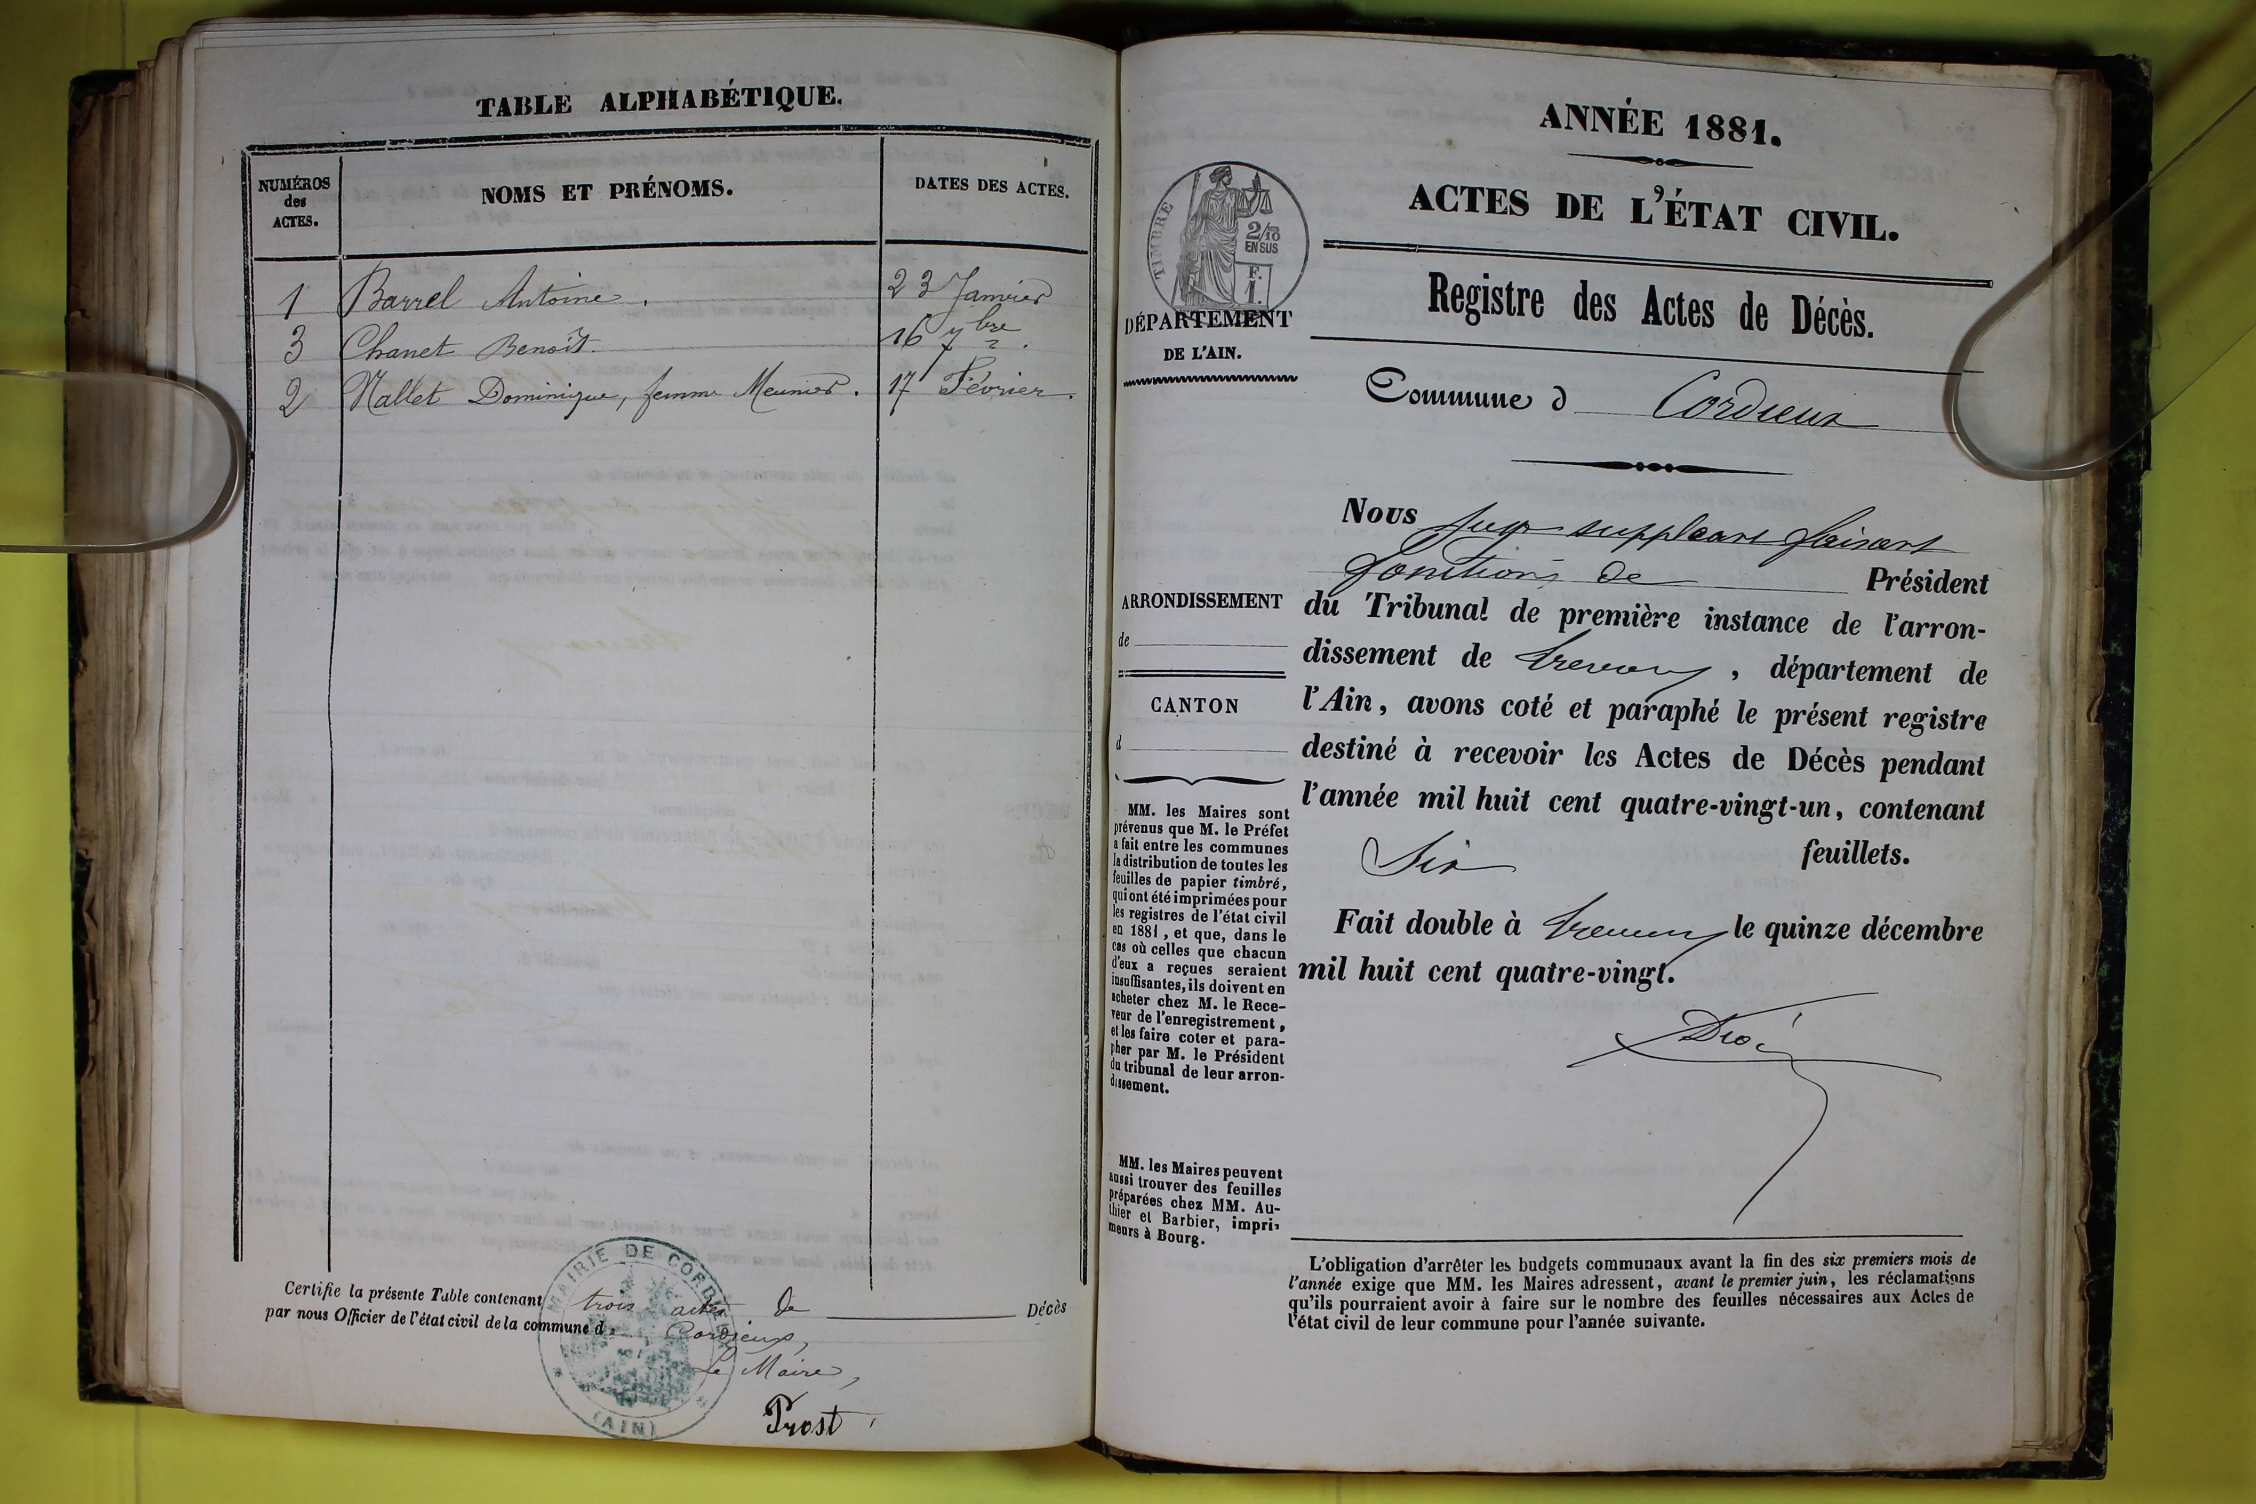 TABLE ALPHABÉTIQUE.
NUMÉROS
des
ACTES.
NOMS ET PRÉNOMS.
DATES DES ACTES.
1 Barrel Antoine. 23 Janvier
3 Chanet Benoît. 16 7bre.
2 Mallet Dominique, femme Meunier. 17 Février.
Certifie la présente Table contenant trois actes de Décès
par nous Officier de l'état civil de la commune d Cordieux,
Le Maire,
Prost
MAIRIE DE CORDIEUX
(AIN)
ANNÉE 1881.
ACTES DE L'ÉTAT CIVIL.
TIMBRE
2/10
EN SUS
F.
1.
DÉPARTEMENT
DE L'AIN.
Registre des Actes de Décès.
Commune d Cordieux
ARRONDISSEMENT
de
CANTON
d
MM. les Maires sont
prévenus que M. le Préfet
a fait entre les communes
la distribution de toutes les
feuilles de papier timbré,
qui ont été imprimées pour
les registres de l'état civil
en 1881, et que, dans le
cas où celles que chacun
d'eux a reçues seraient
insuffisantes, ils doivent en
acheter chez M. le Rece-
veur de l'enregistrement,
et les faire coter et para-
pher par M. le Président
du tribunal de leur arron-
dissement.
MM. les Maires peuvent
aussi trouver des feuilles
préparées chez MM. Au-
thier et Barbier, impri-
meurs à Bourg.
Nous Juge suppléant faisant
fonctions de Président
du Tribunal de première instance de l'arron-
dissement de Trevoux, département de
l'Ain, avons coté et paraphé le présent registre
destiné à recevoir les Actes de Décès pendant
l'année mil huit cent quatre-vingt-un, contenant
Six feuillets.
Fait double à Trevoux le quinze décembre
mil huit cent quatre-vingt.
L'obligation d'arrêter les budgets communaux avant la fin des six premiers mois de
l'année exige que MM. les Maires adressent, avant le premier juin, les réclamations
qu'ils pourraient avoir à faire sur le nombre des feuilles nécessaires aux Actes de
l'état civil de leur commune pour l'année suivante.